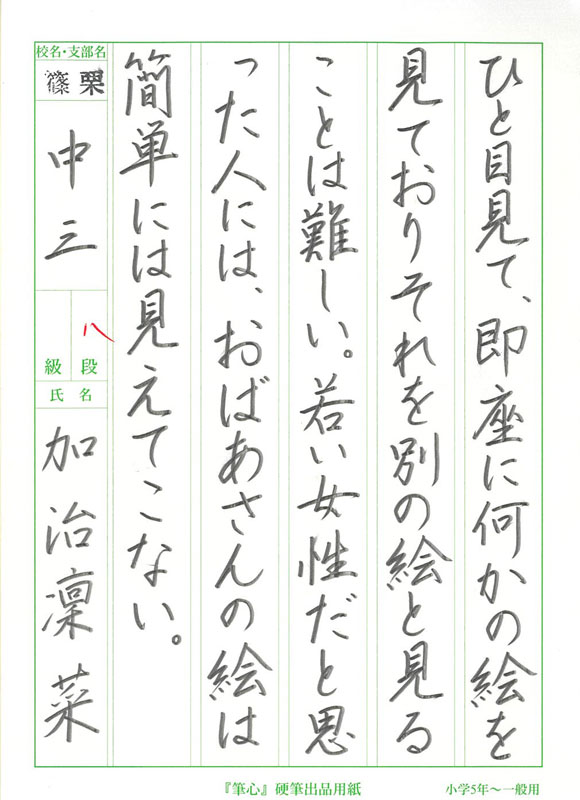 ひと目見て、即座に何かの絵を
見ておりそれを別の絵と見る
ことは難しい。若い女性だと思
った人には、おばあさんの絵は
簡単には見えてこない。
校名・支部名
篠栗
中三
八
段
級
氏名
加治凜菜
『筆心』硬筆出品用紙
小学5年～一般用